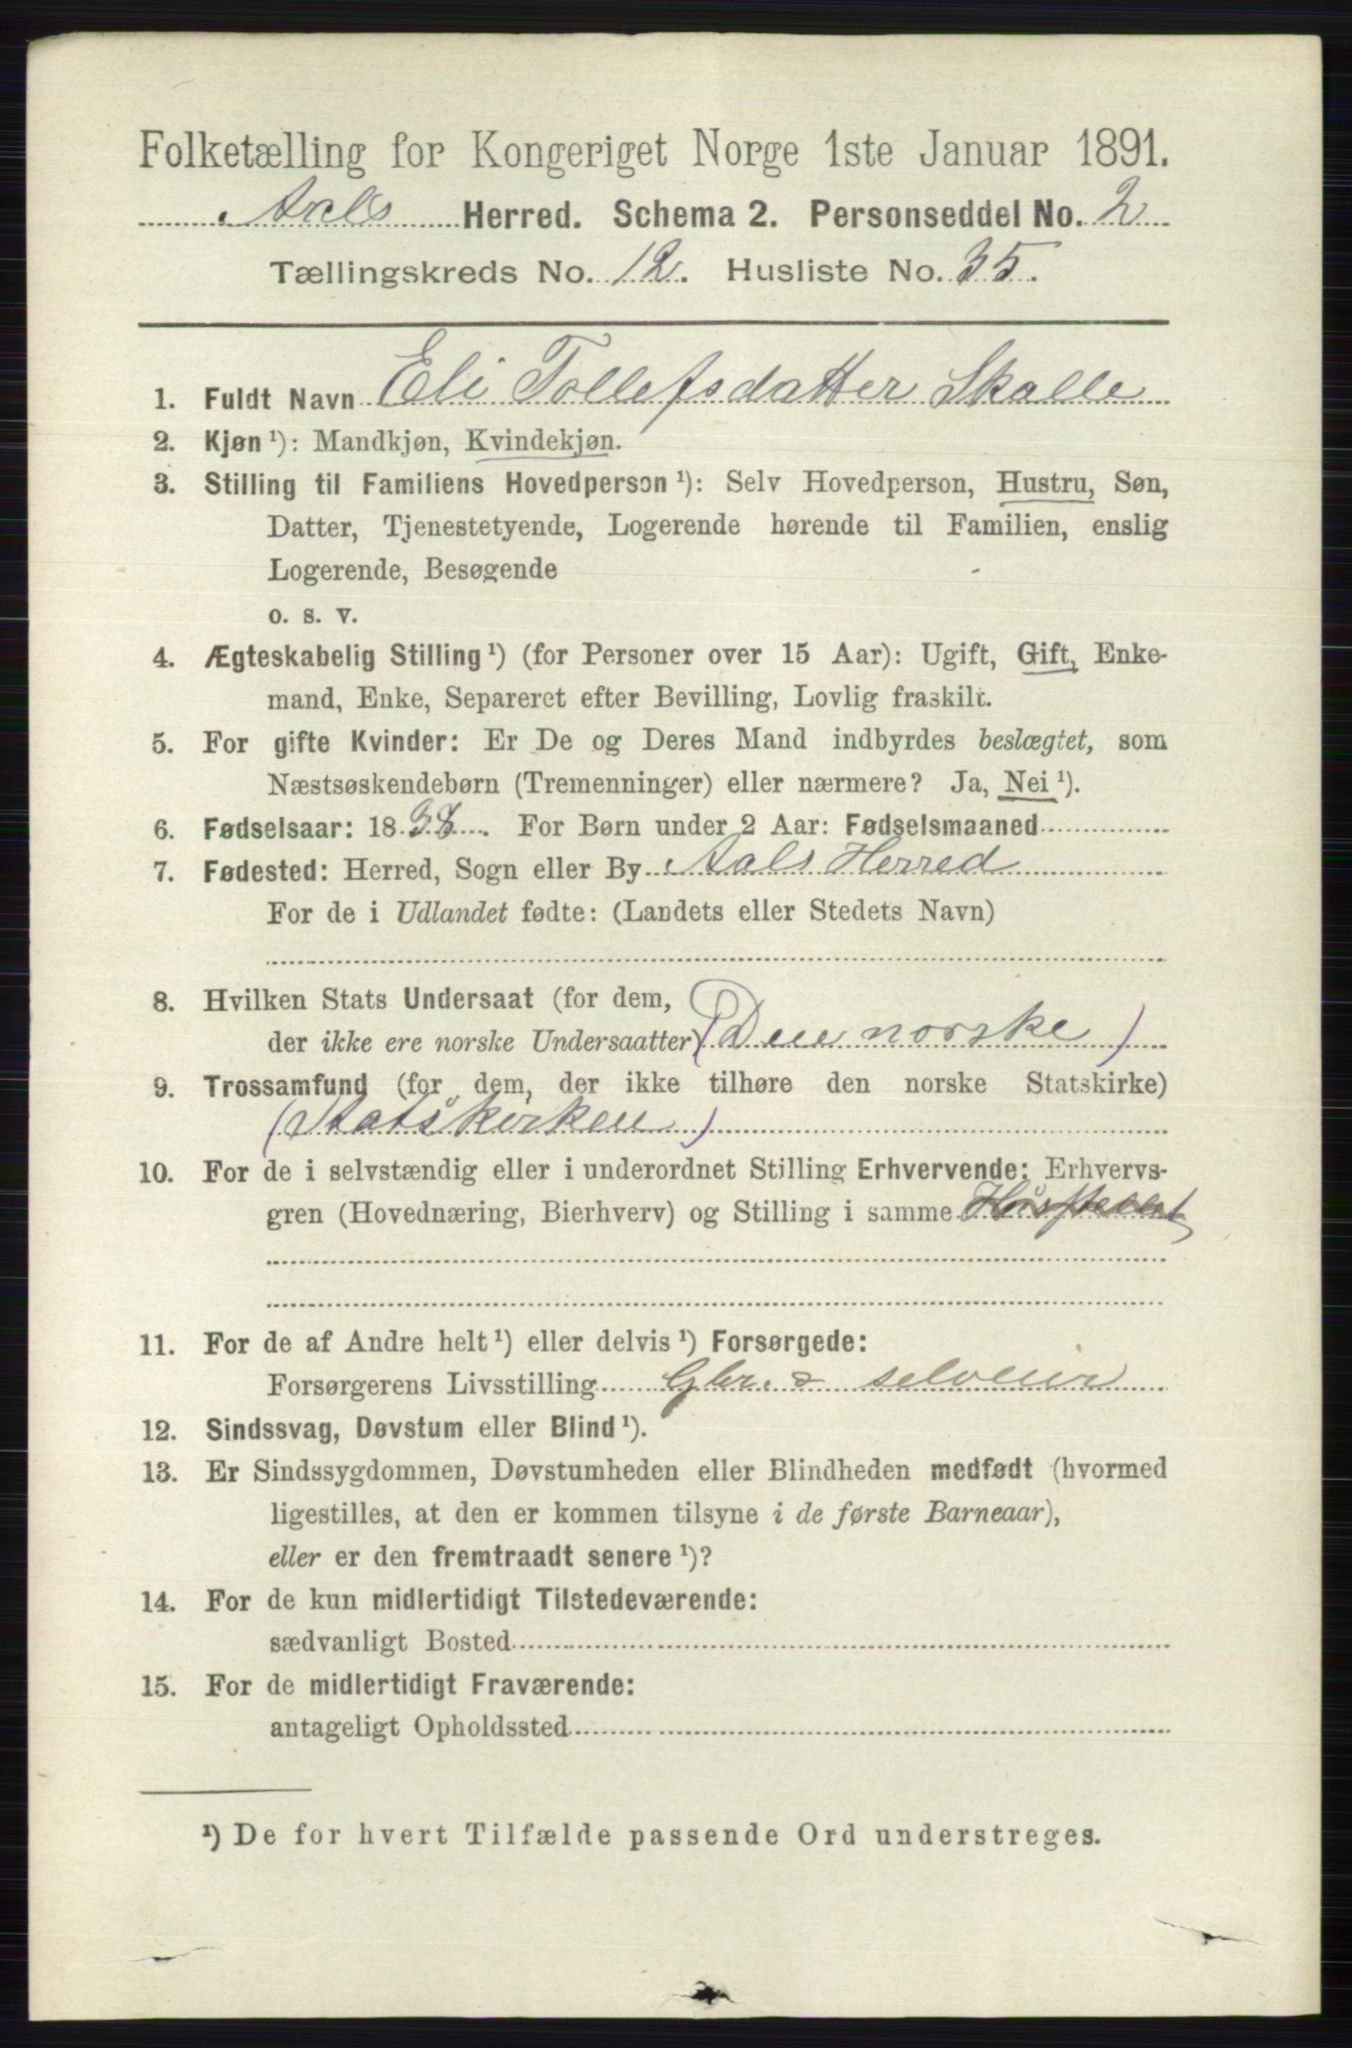 Folketælling for Kongeriget Norge 1ste Januar 1891.
Aals Herred. Schema 2. Personseddel No. 2
Tællingskreds No. 12. Husliste No. 35.
1. Fuldt Navn Eli Tollefsdatter Skalle
2. Kjøn ¹): Mandkjøn, Kvindekjøn.
3. Stilling til Familiens Hovedperson ¹): Selv Hovedperson, Hustru, Søn,
Datter, Tjenestetyende, Logerende hørende til Familien, enslig
Logerende, Besøgende
o. s. v.
4. Ægteskabelig Stilling ¹) (for Personer over 15 Aar): Ugift, Gift, Enke-
mand, Enke, Separeret efter Bevilling, Lovlig fraskilt.
5. For gifte Kvinder: Er De og Deres Mand indbyrdes beslægtet, som
Næstsøskendebørn (Tremenninger) eller nærmere? Ja, Nei ¹).
6. Fødselsaar: 18 . For Børn under 2 Aar: Fødselsmaaned
7. Fødested: Herred, Sogn eller By Aals Herred
For de i Udlandet fødte: (Landets eller Stedets Navn)
8. Hvilken Stats Undersaat (for dem,
der ikke ere norske Undersaatter) (Den norske)
9. Trossamfund (for dem, der ikke tilhøre den norske Statskirke)
(Statskirken)
10. For de i selvstændig eller i underordnet Stilling Erhvervende: Erhvervs-
gren (Hovednæring, Bierhverv) og Stilling i samme
11. For de af Andre helt ¹) eller delvis ¹) Forsørgede:
Forsørgerens Livsstilling Gbr. & selveier
12. Sindssvag, Døvstum eller Blind ¹).
13. Er Sindssygdommen, Døvstumheden eller Blindheden medfødt (hvormed
ligestilles, at den er kommen tilsyne i de første Barneaar),
eller er den fremtraadt senere ¹)?
14. For de kun midlertidigt Tilstedeværende:
sædvanligt Bosted
15. For de midlertidigt Fraværende:
antageligt Opholdssted
¹) De for hvert Tilfælde passende Ord understreges.